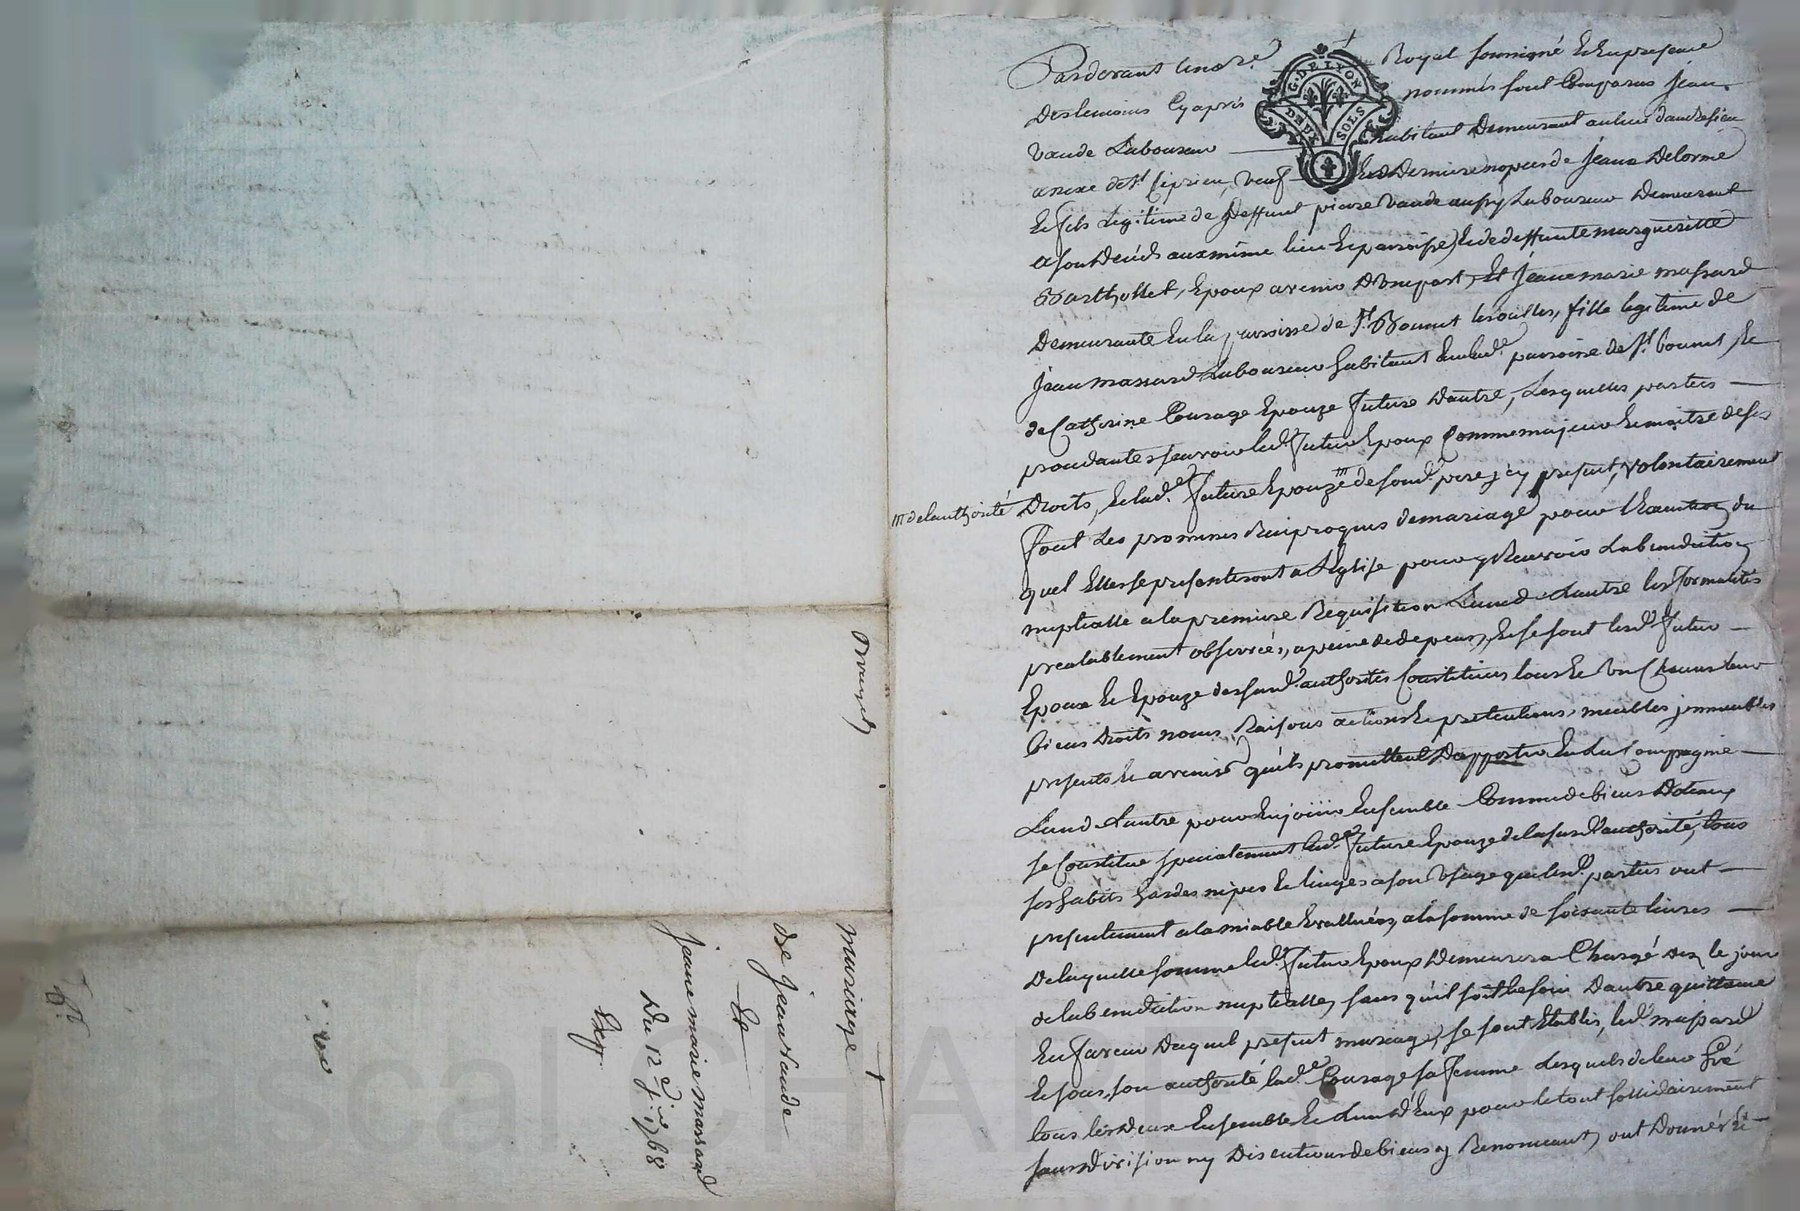 Pardevant le no.re Royal soussigné Et En presence
Des temoins Cy aprés nommés sont Comparus Jean
Vaude Laboureur habitant Demeurant au lieu
anexe de St Ciprien, veuf En Derniere nopces de Jeanne Delorme
Et fils Legitime de Deffunt pierre Vaude aussy Laboureur Demeurant
a son Decéds au même lieu Et paroisse, Et de deffunte margueritte
Barthollet, Epoux avenir D'une part, Et Jeanne marie massard
Demeurante En la paroisse de St Bonnet les oulles, fille legitime de
Jean massard Laboureur habitant En lad.e paroisse de St bonnet, Et
de Catherine Courage Epouze future D'autre, Lesquelles parties
procedantes sçavoir led. futur Epoux Comme majeur Et maitre de ses
Droits, Et lad.e future Epouze m de son d. pere, icy present, volontairement
m de l'authorité
font Les promesses Reciproques de mariage pour l'Execution du
quel Elles se presenteront a L'Eglise pour y Recevoir La benediction
nuptialle a la premiere Requisition L'un de L'autre les formalités
prealablement observées, a peine de depens, Et se sont lesd. futur
Epoux Et Epouze de sa susd. authorité Constitués tous Et Un Chacun leurs
biens Droits noms Raisons actions Et pretentions, meubles immeubles
presents Et avenir qu'ils promettent D'apporter En La Compagnie
L'un de L'autre pour En joüir Ensemble Comme de biens Dotaux
se Constitue specialement lad.e future Epouze de la susd. authorité, tous
ses habits hardes nipes Et linges a son Usage que lesd. parties ont
presentement a l'amiable Evalluées a la somme de soixante livres
De laquelle somme led. futur Epoux Demeurera Chargé Dez le jour
de la benediction nuptialle, sans qu'il soit besoin D'autre quittance
En faveur Duquel present mariage, se sont Etablis, led. massard
Et sous son authorité lad.e Courage sa femme Lesquels de leur gré
tous les deux Ensemble Et L'un D'Eux pour le tout sollidairement
sans division ny Discution de biens y Renonceant, ont Donné Et
mariage
de jean Vaude
Et
jeanne marie massard
Du 12 1768
Exp.